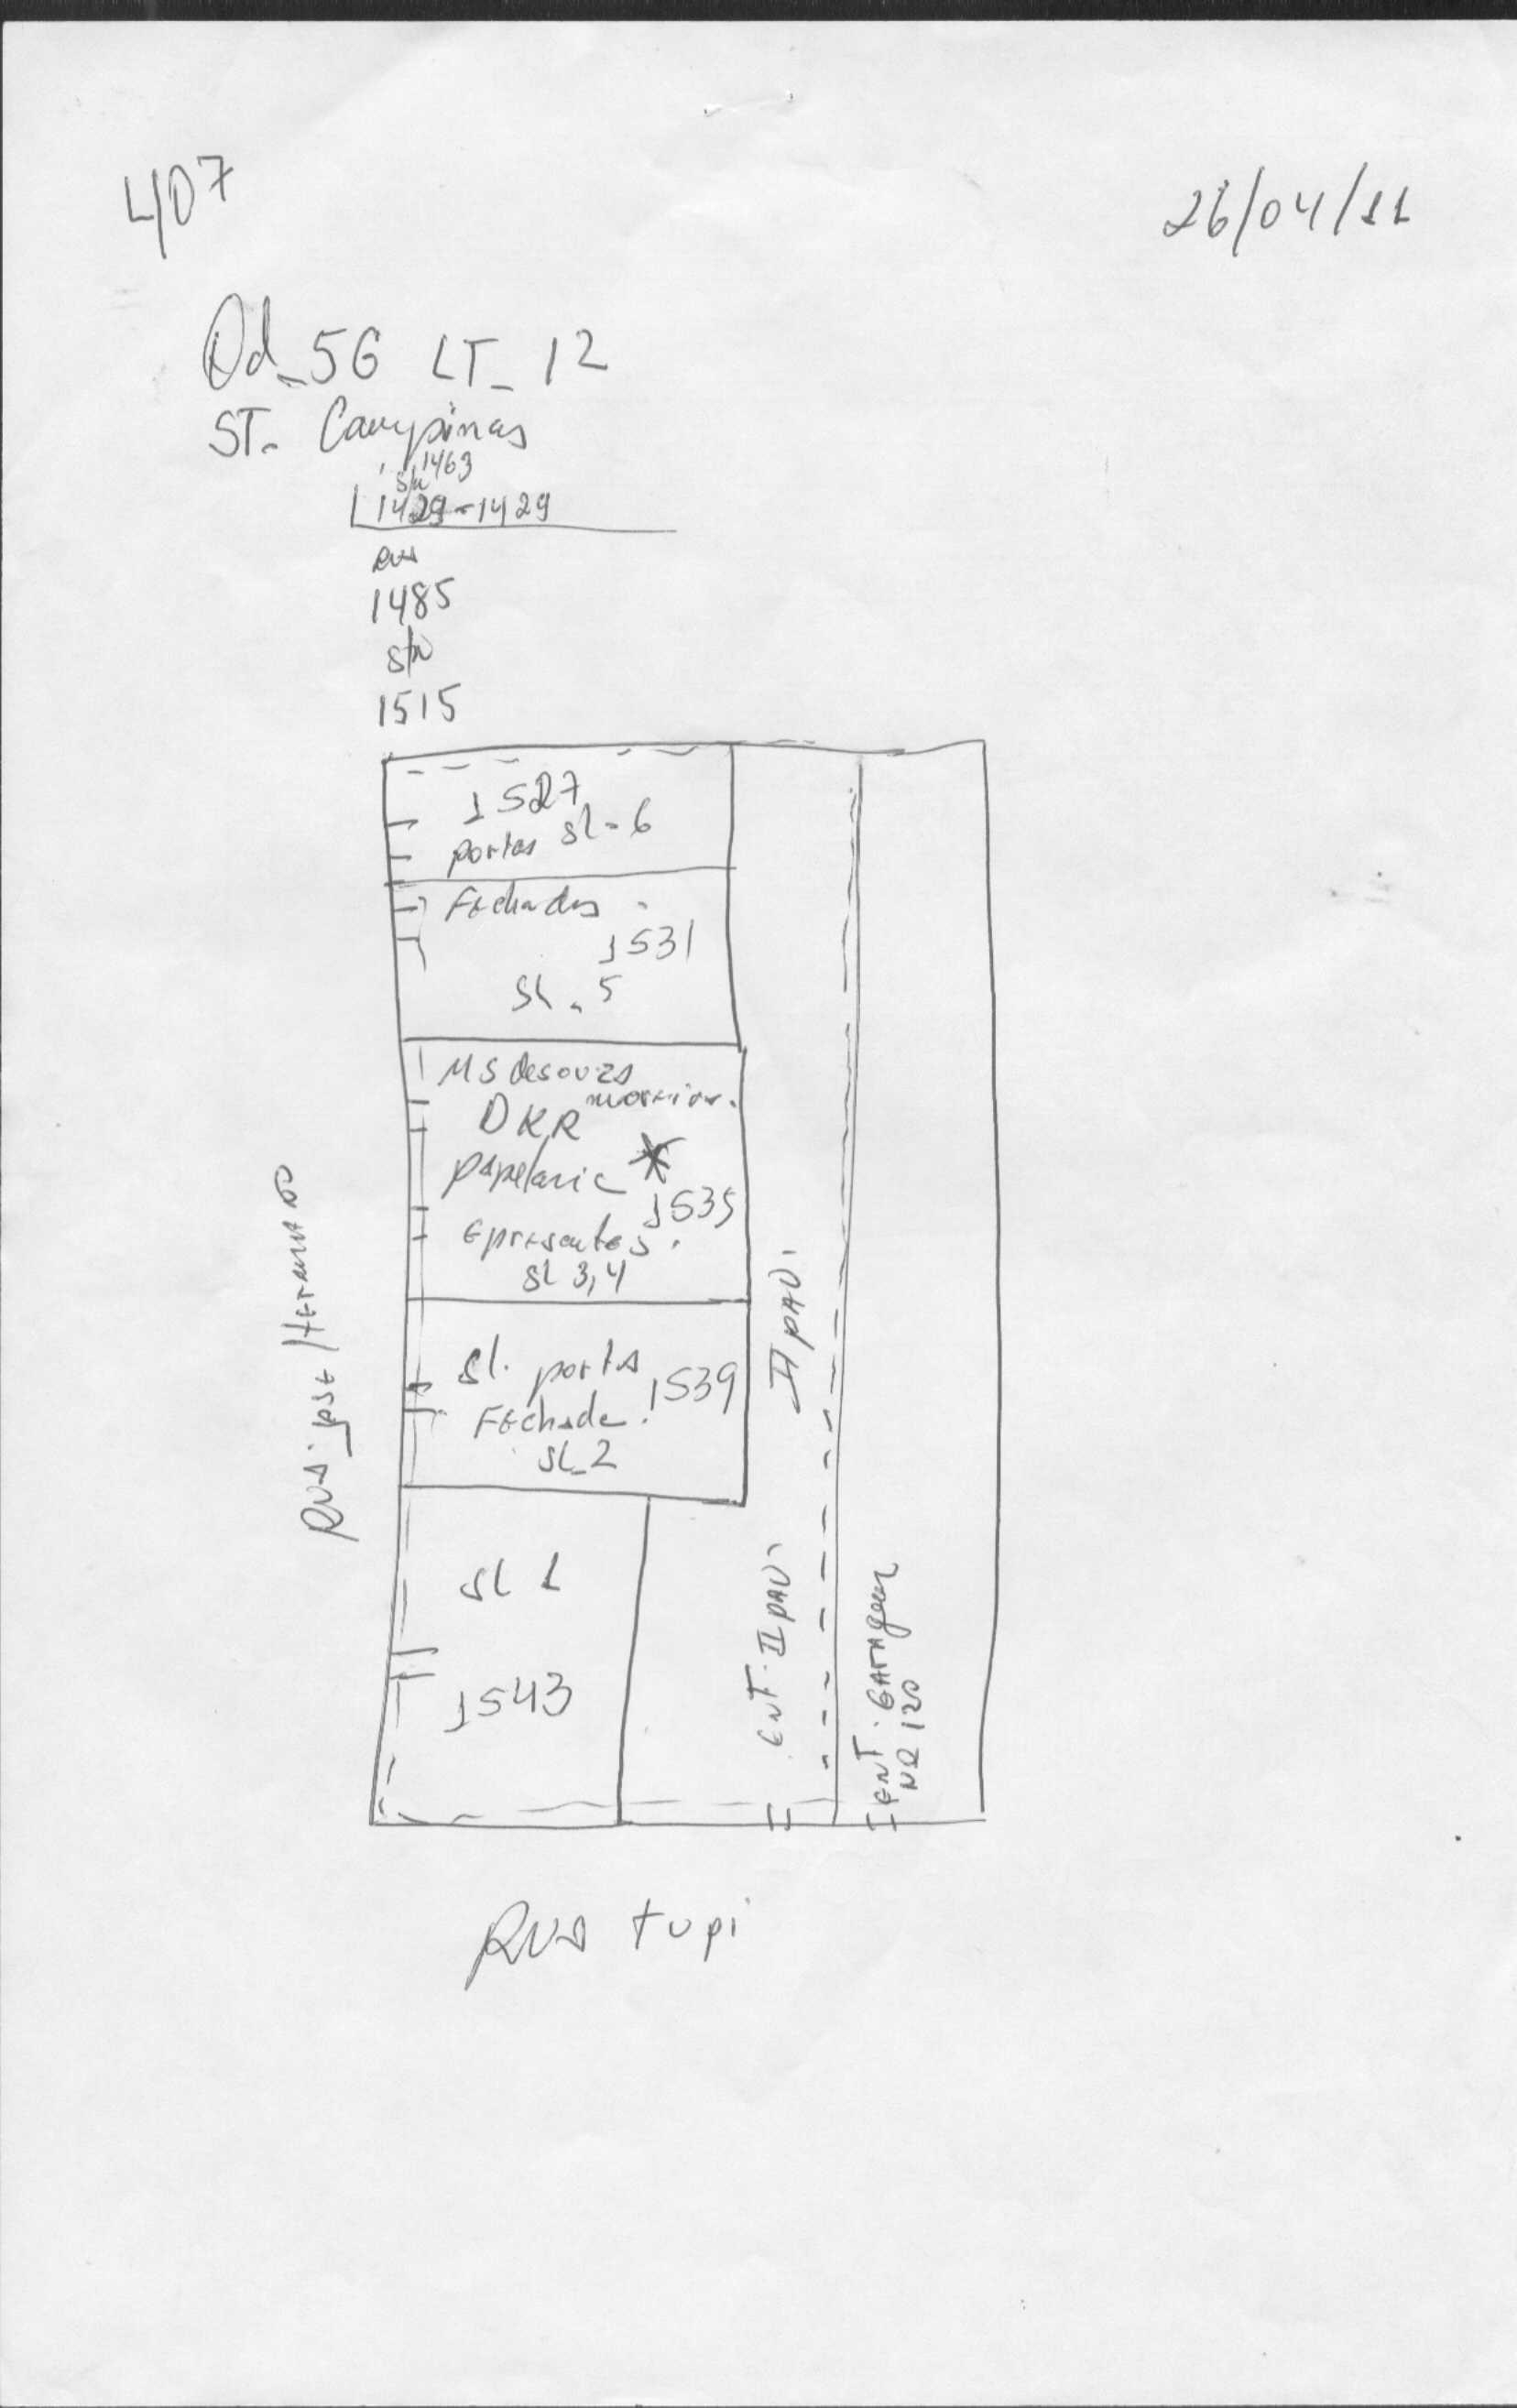 407
26/04/11
Qd_56 LT_12
ST. Campinas
1463
S/N
1429-1429
RUA
1485
S/N
1515
1527
portas sl-6
Fechadas
1531
SL. 5
MS desouza
DKR
papelaria *
1535
e presentes.
SL 3,4
sl. porta
1539
Fechada.
SL_2
SL 1
1543
RUA. JOSE HERMANO
II PAV.
ENT. II PAV.
ENT. GARAGEM
Nº 120
RUA tupi